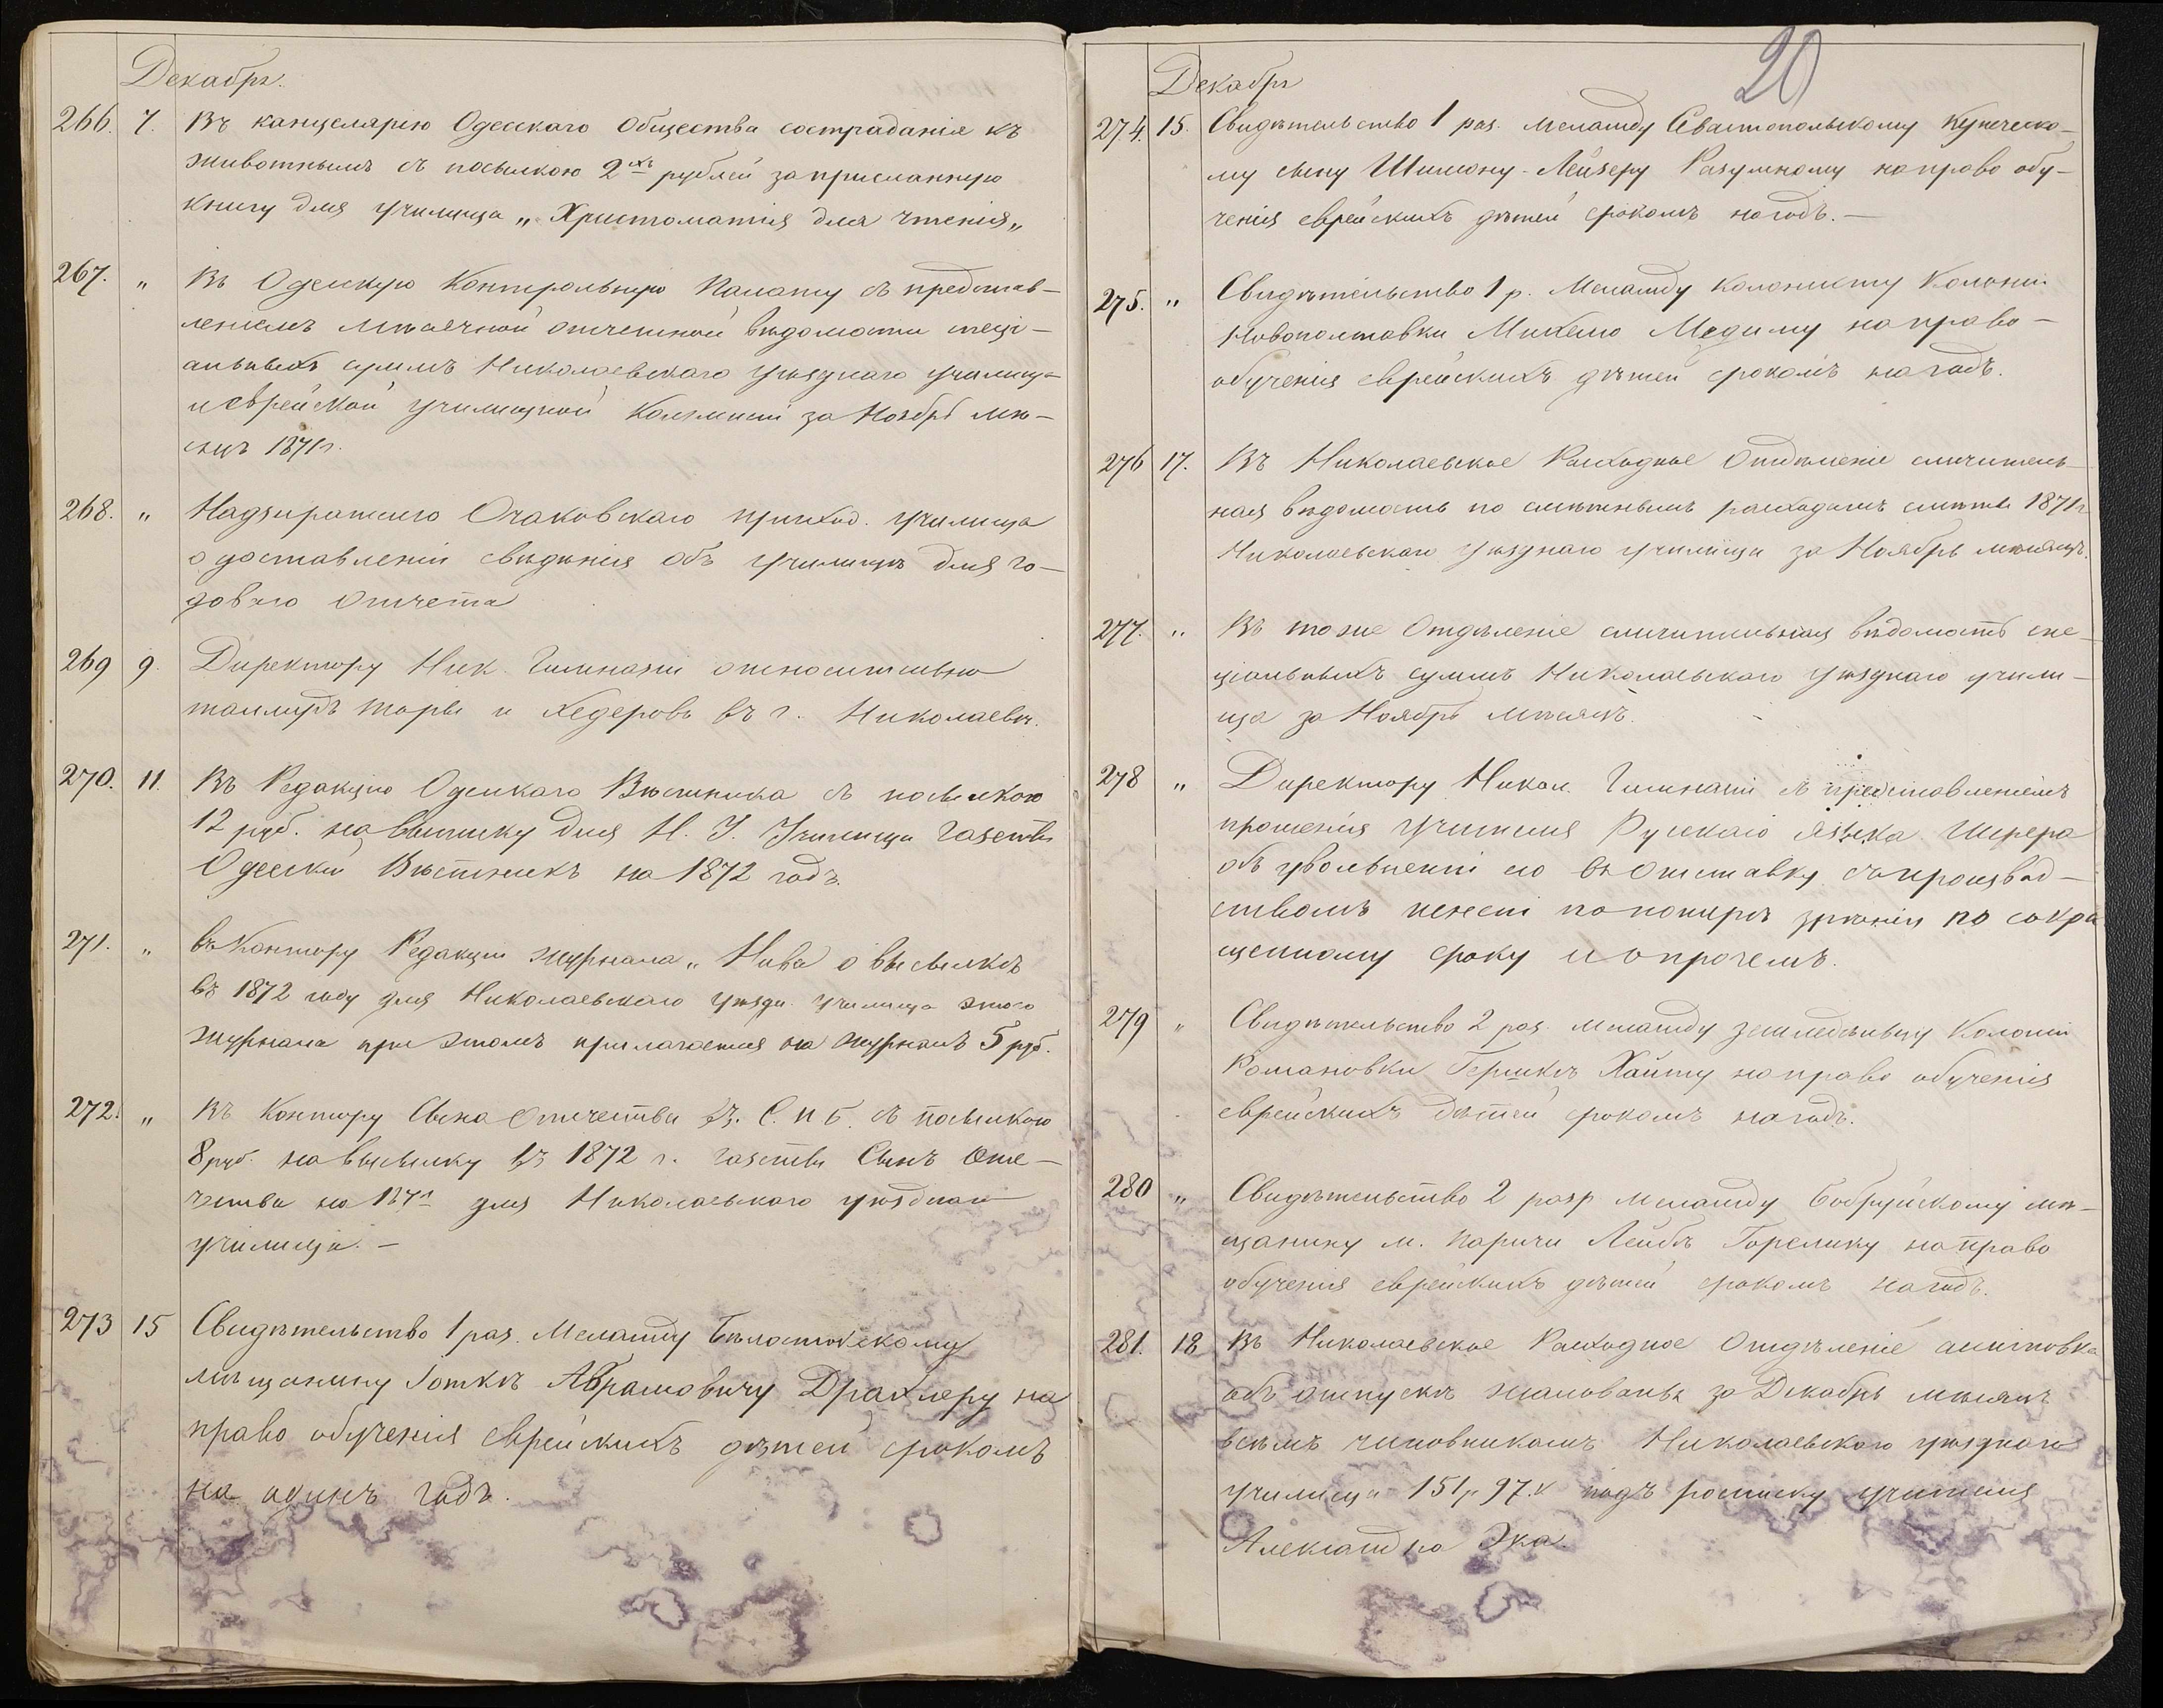 Декабрь.
266. 7. Въ канцелярію Одесскаго Общества состраданія къ
животнымъ съ посылкою 2хъ рублей за присланную
книгу для училища „Христоматія для чтенія„
267. „ Въ Одесскую Контрольную Палату съ представ-
леніемъ мѣсячной отчетной вѣдомости спеці-
альныхъ суммъ Николаевскаго уѣзднаго училища
и еврейской училищной Коммисіи за Ноябрь мѣ-
сяцъ 1871г.
268. „ Надзирателю Очаковскаго приход. училища
о доставленіи свѣдѣнія объ училищѣ для го-
доваго отчета
269 9. Директору Ник. Гимназіи относительно
талмудъ торы и хедеровъ въ г. Николаевѣ.
270. 11. Въ Редакцію Одесскаго Вѣстника съ посылкою
12 руб. на выписку для Н. У. Училища газеты
Одесскій Вѣстникъ на 1872 годъ.
271. „ въ Контору Редакціи журнала „Нива о высылкѣ
въ 1872 году для Николаевскаго уѣздн. училища этого
журнала при этомъ прилагается на журналъ 5 руб.
272. „ Въ Контору Сына Отечества въ С.П.Б. съ посылкою
8 руб. на высылку въ 1872 г. газеты Сынъ Оте-
чества на 187 для Николаевскаго уѣзднаго
училища. -
273 15 Свидѣтельство 1 раз. Меламду Бѣлостокскому
мѣщанину Іоткѣ Абрамовичу Драхлеру на
право обученія еврейскихъ дѣтей срокомъ
на одинъ годъ.
20
Декабрь
274. 15. Свидѣтельство 1 раз. меламду Севастопольскому Купеческо-
му сыну Шимону-Лейзеру Разумному на право обу-
ченія еврейскихъ дѣтей срокомъ на годъ. -
275. „ Свидѣтельство 1 р. Меламду колонисту Колоніи
Новополтавки Михелю Медиму на право-
обученія еврейскихъ дѣтей срокомъ на годъ.
276 17. Въ Николаевское Расходное Отдѣленіе сличитель-
ная вѣдомость по смѣтнымъ расходамъ смѣты 1871г
Николаевскаго уѣзднаго училища за Ноябрь мѣсяцъ.
277. „ Въ тоже Отдѣленіе сличительная вѣдомость спе-
ціальныхъ суммъ Николаевскаго уѣзднаго учили-
ща за Ноябрь мѣсяцъ.
278 „ Директору Никол. Гимназіи съ представленіемъ
прошенія учителя Русскаго языка Шрера
объ увольненіи его въ Отставку съ производ-
ствомъ пенсіи по зрѣнія по сокра
щенному сроку и о прочемъ.
279 „ Свидѣтельство 2 раз. меламду земледѣльцу Колоніи
Романовки Гершкѣ Хайту на право обученія
еврейскихъ дѣтей срокомъ на годъ.
280 „ Свидѣтельство 2 разр меламду Бобруйскому мѣ-
щанину м. Паричи Лейбѣ Горелику на право
обученія еврейскихъ дѣтей срокомъ на годъ.
281. 18 Въ Николаевское Расходное Отдѣленіе асигновка
объ отпускѣ жалованья за Декабрь мѣсяцъ
всѣмъ чиновникамъ Николаевскаго уѣзднаго
училища 151р 97.к подъ росписку учителя
Александра Эка.